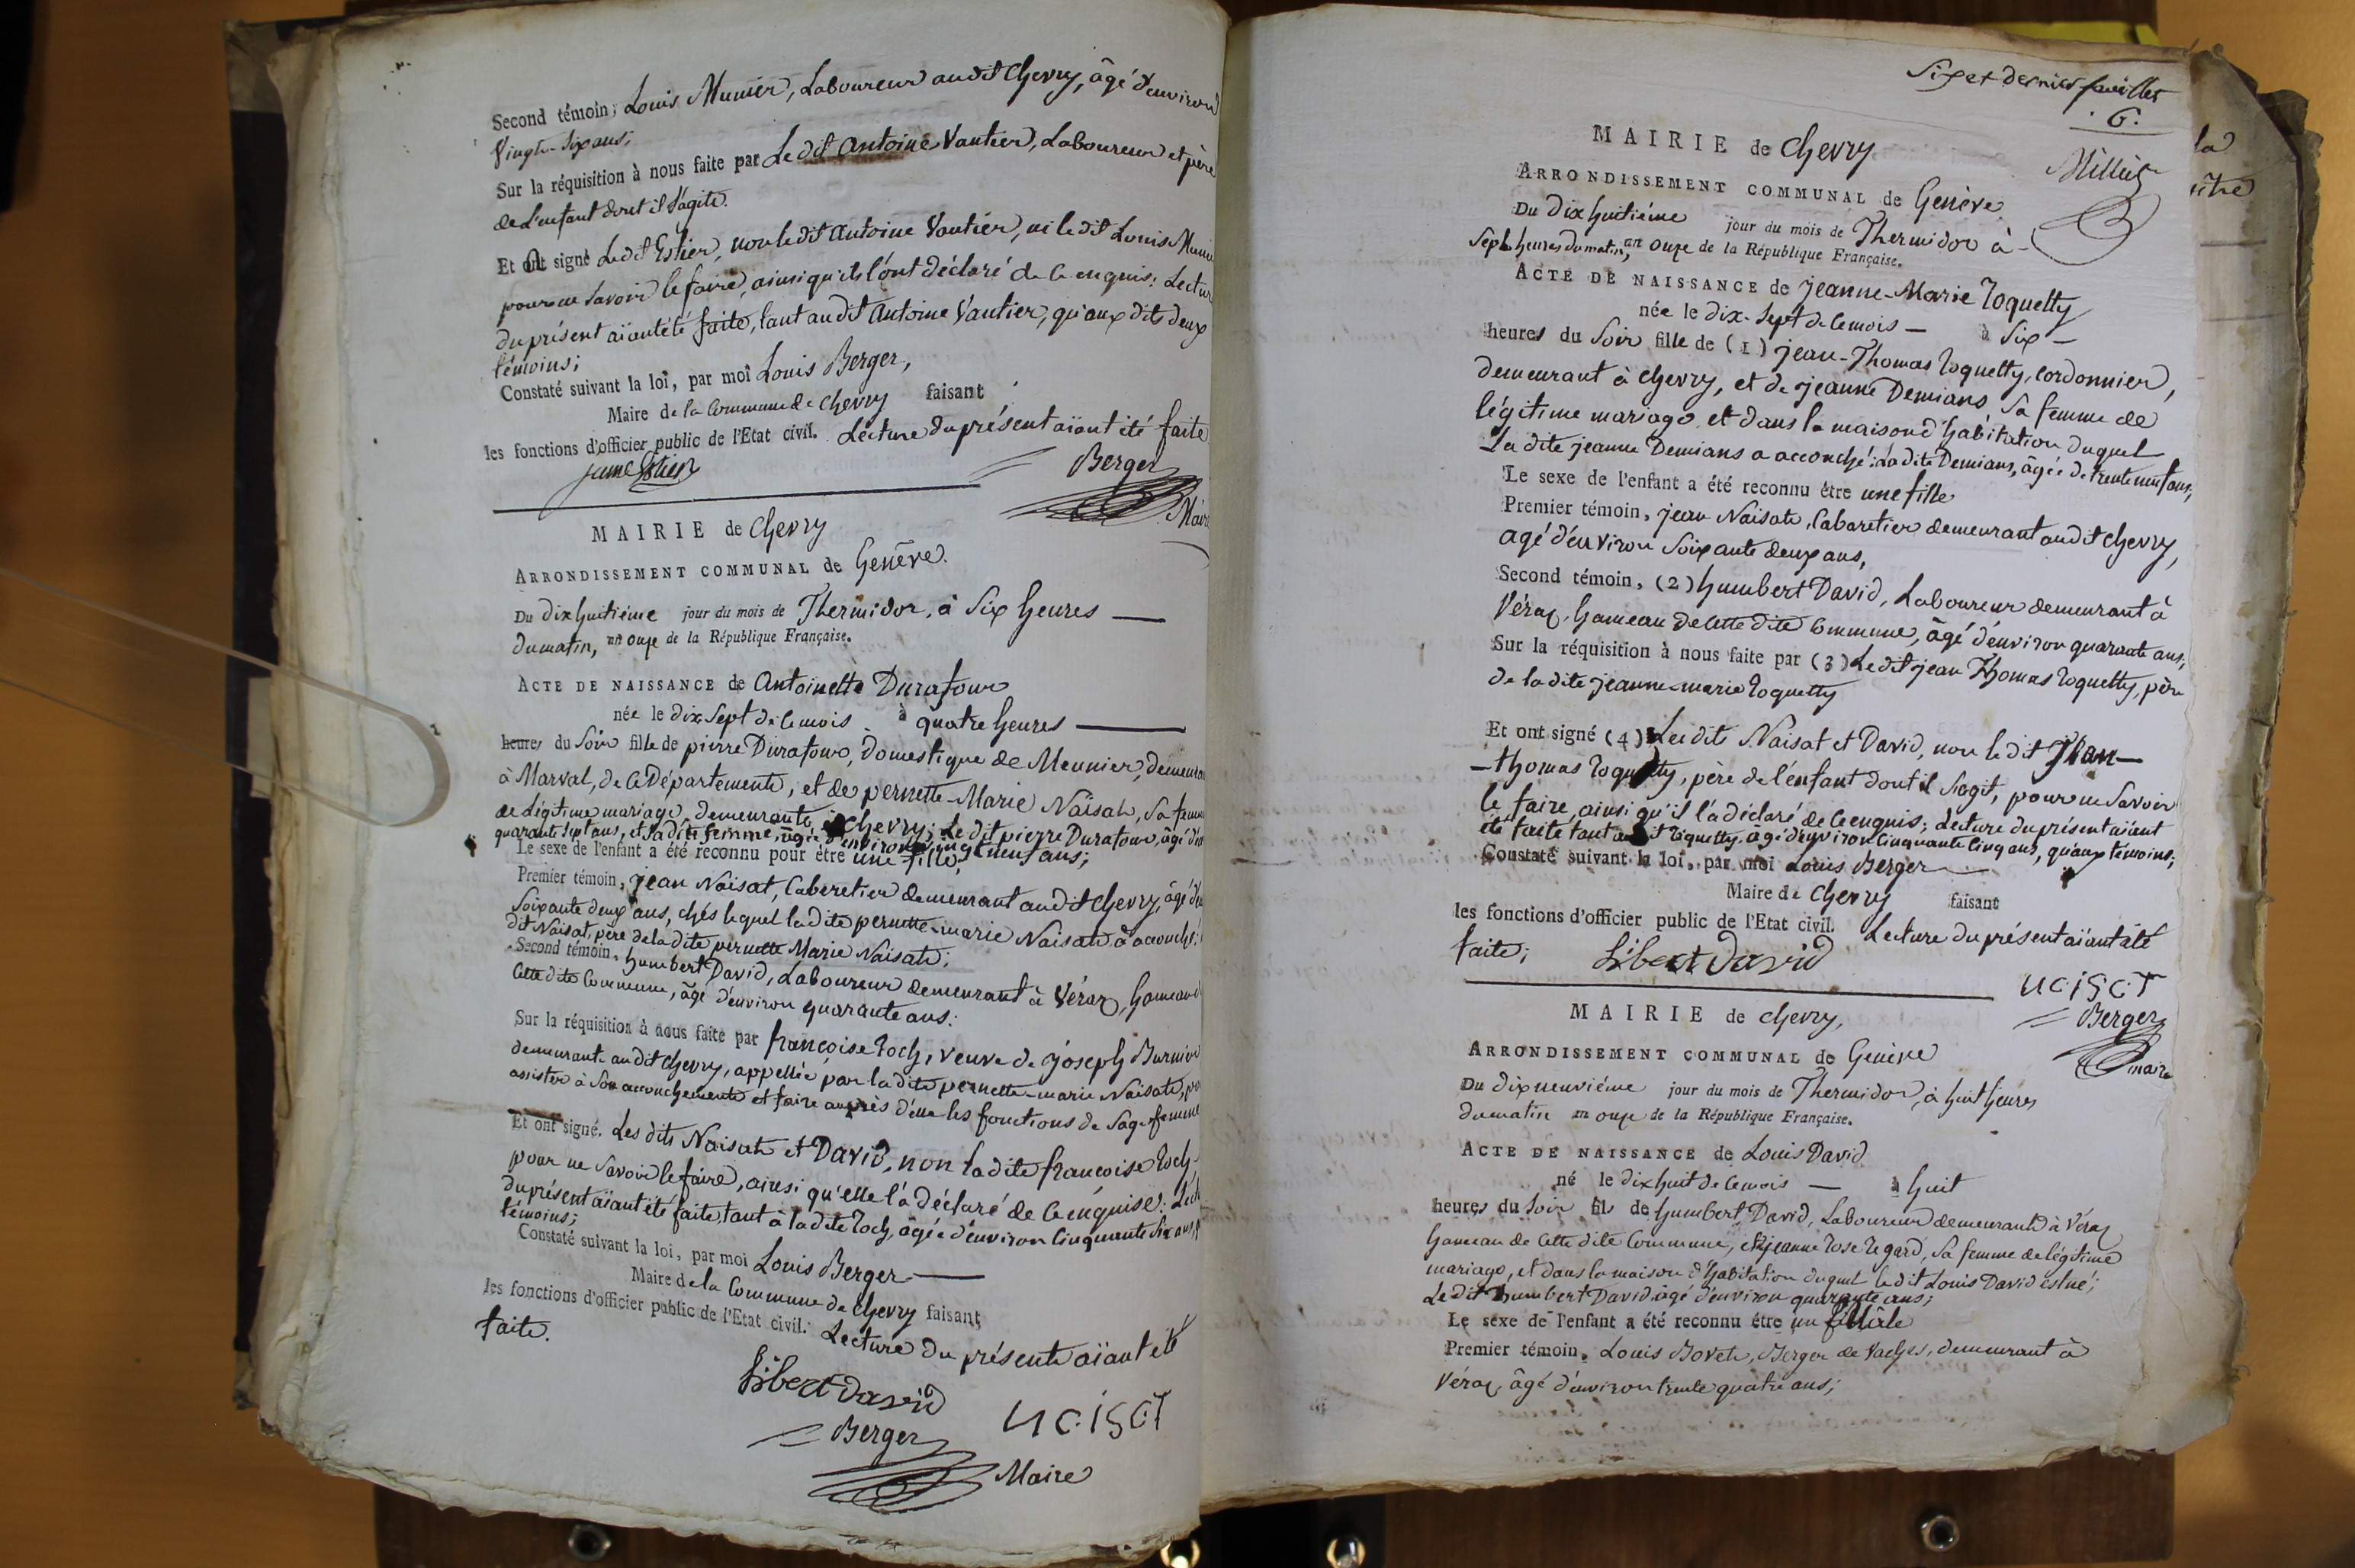 Second témoin, Louis Munier, Laboureur audit Chevry, âgé d'environ
Vingt-Six ans;
Sur la réquisition à nous faite par Le dit Antoine Vautier, Laboureur et père
de L'enfant dont il S'agite.
Et ont signé Ledit Estier, non ledit Antoine Vautier, ni le dit Louis Muni
pour ne Savoir le faire, ainsi qu'ils l'ont déclaré de ce enquis: Lectur
du présent aïant été faite, tant audit Antoine Vautier, qu'aux dits deux
témoins;
Constaté suivant la loi, par moi Louis Berger,
Maire de la Commune de Chevry faisant
les fonctions d'officier public de l'Etat civil. Lecture du présent aïant été faite
Berger
Maire
MAIRIE de Chevry
ARRONDISSEMENT COMMUNAL de Genève.
Du dix huitiéme jour du mois de Thermidor, à Six heures —
du matin, an onze de la République Française.
ACTE DE NAISSANCE de Antoinette Durafour
née le dix Sept de ce mois à quatre heures —
heures du Soir fille de pierre Durafour, domestique de Meunier, demeura
à Marval, de ce Département, et de pernette-Marie Naïsat, Sa femme
de Légitime mariage, demeurante à Chevry; Le dit pierre Durafour, âgé d'en
quarante Sept ans, et Sa dite femme, âgée d'environ vingt neuf ans;
Le sexe de l'enfant a été reconnu pour être une fille,
Premier témoin, jean Naisat, Cabaretier demeurant audit Chevry, âgé d'en
Soixante deux ans, chés lequel la dite pernette-marie Naisat à accouché:
dit Naisat, père de la dite pernette Marie Naisate;
Second témoin, humbert David, Laboureur demeurant à Véraz, hameau d
Cette dite Commune, âgé d'environ quarante ans:
Sur la réquisition à nous faite par françoise Roch, veuve de joseph Burnier
demeurante audit Chevry, appellée par la dite pernette-marie Naisate, po
assister à Son accouchement et faire auprès d'elle les fonctions de Sage femme
Et ont signé. Les dits Naisate et David, non la dite françoise Roch
pour ne Savoir le faire, ainsi qu'elle l'à déclaré de ce enquise: Lect
du présent aïant été faite, tant à la dite Roch, âgée d'environ Cinquante Six ans,
témoins;
Constaté suivant la loi, par moi Louis Berger —
Maire de la Commune de Chevry faisant
les fonctions d'officier public de l'Etat civil. Lecture du présente aïant été
faite.
Libert David
Berger
Maire
Six et dernier feuillet
6.
MAIRIE de Chevry
ARRONDISSEMENT COMMUNAL de Genève
Du dix huitiéme jour du mois de Thermidor à
Sept heures du matin, an onze de la République Française.
ACTE DE NAISSANCE de jeanne-Marie Roquetty
née le dix-Sept de ce mois — à Six —
heures du Soir fille de (1) jean-Thomas Roquetty, Cordonnier,
demeurant à Chevry, et de jeanne Demians, Sa femme de
légitime mariage, et dans la maison d'habitation duquel
La dite jeanne Demians a accouché: la dite Demians, âgée de trente neuf ans,
Le sexe de l'enfant a été reconnu être une fille
Premier témoin, jean Naisate, Cabaretier demeurant audit Chevry,
agé d'environ Soixante deux ans,
Second témoin, (2) humbert David, Laboureur demeurant à
Véraz, hameau de Cette dite Commune, âgé d'environ quarante ans;
Sur la réquisition à nous faite par (3) Le dit jean Thomas Roquetty, père
de la dite jeanne-marie Roquetty
Et ont signé (4) Les dits Naisat et David, non le dit Jean-
-thomas Roquetty, père de l'enfant dont il S'agit, pour ne Savoir
le faire, ainsi qu'il l'à déclaré de ce enquis; Lecture du présent aïant
été faite tant audit Roquetty, âgé d'environ Cinquante Cinq ans, qu'aux témoins;
Constaté suivant la loi, par moi Louis Berger
Maire de Chevry faisant
les fonctions d'officier public de l'Etat civil. Lecture du présent aïant été
faite; Libert David
Berger
maire
MAIRIE de Chevry,
ARRONDISSEMENT COMMUNAL de Genève
Du dix neuviéme jour du mois de Thermidor, à huit heures
du matin an onze de la République Française.
ACTE DE NAISSANCE de Louis David
né le dix huit de ce mois — à huit
heures du Soir fils de humbert David, Laboureur demeurant à Véraz
hameau de Cette dite Commune, et jeanne Rose Regard, Sa femme de légitime
mariage, et dans la maison d'habitation duquel le dit Louis David est né;
Le dit humbert David agé d'environ quarante ans;
Le sexe de l'enfant a été reconnu être un Mâle
Premier témoin, Louis Bovet, Berger de Vaches, demeurant à
Véraz, âgé d'environ trente quatre ans;